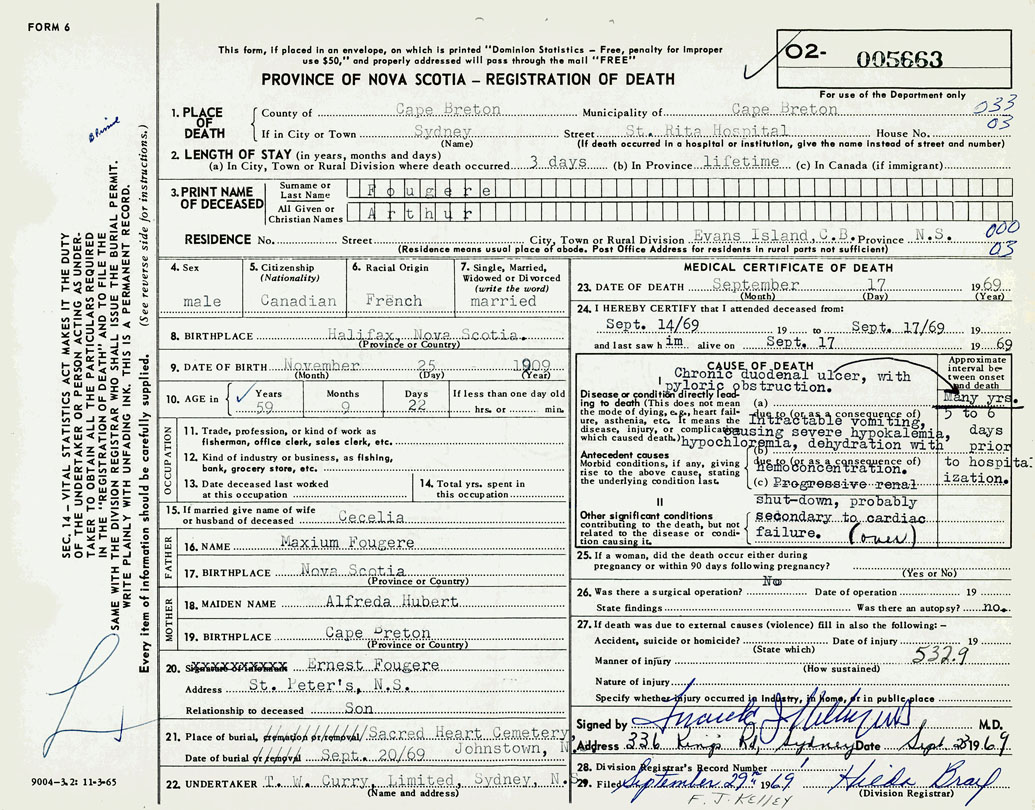 FORM 6
This form, if placed in an envelope, on which is printed "Dominion Statistics – Free, penalty for improper
use $50," and properly addressed will pass through the mail "FREE"
PROVINCE OF NOVA SCOTIA – REGISTRATION OF DEATH
02- 005663
For use of the Department only
033
03
1. PLACE OF DEATH
County of Cape Breton Municipality of Cape Breton
If in City or Town Sydney Street St. Rita Hospital House No.
(Name) (If death occurred in a hospital or institution, give the name instead of street and number)
2. LENGTH OF STAY (in years, months and days)
(a) In City, Town or Rural Division where death occurred 3 days (b) In Province lifetime (c) In Canada (if immigrant)
3. PRINT NAME OF DECEASED
Surname or Last Name Fougere
All Given or Christian Names Arthur
RESIDENCE No. Street City, Town or Rural Division Evans Island, C.B. Province N.S.
(Residence means usual place of abode. Post Office Address for residents in rural parts not sufficient)
000
03
4. Sex
male
5. Citizenship
(Nationality)
Canadian
6. Racial Origin
French
7. Single, Married,
Widowed or Divorced
(write the word)
married
8. BIRTHPLACE Halifax, Nova Scotia.
(Province or Country)
9. DATE OF BIRTH November 25 1909
(Month) (Day) (Year)
10. AGE in Years Months Days If less than one day old
59 9 22 hrs. or min.
OCCUPATION
11. Trade, profession, or kind of work as
fisherman, office clerk, sales clerk, etc.
12. Kind of industry or business, as fishing,
bank, grocery store, etc.
13. Date deceased last worked
at this occupation
14. Total yrs. spent in
this occupation
15. If married give name of wife
or husband of deceased Cecelia
FATHER
16. NAME Maxium Fougere
17. BIRTHPLACE Nova Scotia
(Province or Country)
MOTHER
18. MAIDEN NAME Alfreda Hubert
19. BIRTHPLACE Cape Breton
(Province or Country)
20. Signature of Informant Ernest Fougere
Address St. Peter's, N.S.
Relationship to deceased Son
21. Place of burial, cremation or removal Sacred Heart Cemetery,
Johnstown, N.
Date of burial or removal Sept. 20/69
22. UNDERTAKER T. W. Curry, Limited, Sydney, N.S.
(Name and address)
MEDICAL CERTIFICATE OF DEATH
23. DATE OF DEATH September 17 1969
(Month) (Day) (Year)
24. I HEREBY CERTIFY that I attended deceased from:
Sept. 14/69 19 to Sept. 17/69 19
and last saw h im alive on Sept. 17 1969
CAUSE OF DEATH
Approximate
interval be-
tween onset
and death
I
Chronic duodenal ulcer, with
pyloric obstruction.
Many yrs.
Disease or condition directly lead-
ing to death (This does not mean
the mode of dying, e.g., heart fail-
ure, asthenia, etc. It means the
disease, injury, or complication
which caused death.)
(a)
due to (or as a consequence of)
Intractable vomiting,
causing severe hypokalemia,
hypochloremia, dehydration with
5 to 6
days
prior
to hospital-
ization.
Antecedent causes
Morbid conditions, if any, giving
rise to the above cause, stating
the underlying condition last.
(b)
due to (or as a consequence of)
hemoconcentration.
(c) Progressive renal
shut-down, probably
secondary to cardiac
failure. (over)
II
Other significant conditions
contributing to the death, but not
related to the disease or condi-
tion causing it.
25. If a woman, did the death occur either during
pregnancy or within 90 days following pregnancy?
(Yes or No)
No
26. Was there a surgical operation? Date of operation 19
State findings Was there an autopsy? no.
27. If death was due to external causes (violence) fill in also the following: –
Accident, suicide or homicide? Date of injury 19
(State which)
532.9
Manner of injury
(How sustained)
Nature of injury
Specify whether injury occurred in Industry, in Home, or in public place
Signed by M.D.
Address 336 Kings Rd, Sydney Date Sept 23 1969
28. Division Registrar's Record Number
29. Filed September 29th 1969 Hilda Bray
F. J. KELLEY (Division Registrar)
SEC. 14 – VITAL STATISTICS ACT MAKES IT THE DUTY
OF THE UNDERTAKER OR PERSON ACTING AS UNDER-
TAKER TO OBTAIN ALL THE PARTICULARS REQUIRED
IN THE "REGISTRATION OF DEATH" AND TO FILE THE
SAME WITH THE DIVISION REGISTRAR WHO SHALL ISSUE THE BURIAL PERMIT.
WRITE PLAINLY WITH UNFADING INK. THIS IS A PERMANENT RECORD.
Every item of information should be carefully supplied. (See reverse side for instructions.)
9004-3.2: 11-3-65